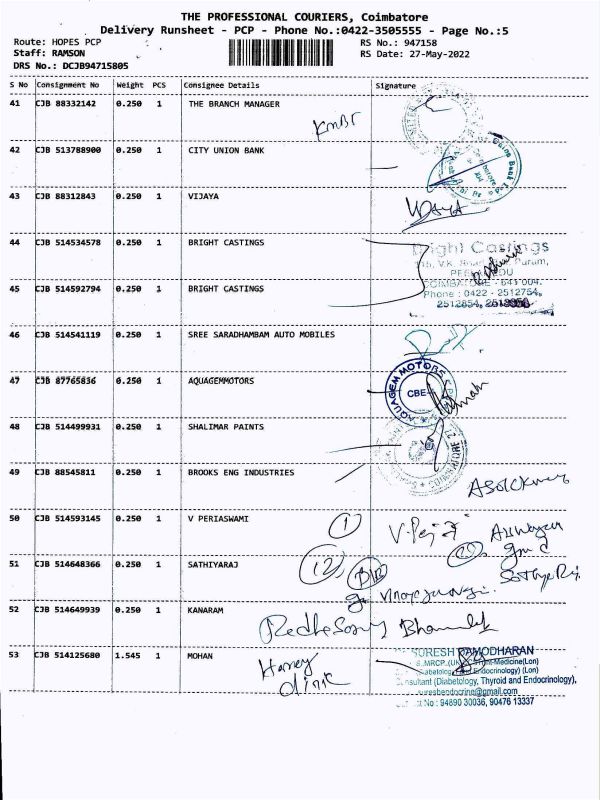 THE PROFESSIONAL COURIERS, Coimbatore
Delivery Runsheet - PCP - Phone No.:0422-3505555 - Page No.:5
Route: HOPES PCP RS No.: 947158
Staff: RAMSON RS Date: 27-May-2022
DRS No.: DCJB94715805
S No Consignment No Weight PCS Consignee Details Signature
41 CJB 88332142 0.250 1 THE BRANCH MANAGER
42 CJB 513788900 0.250 1 CITY UNION BANK
43 CJB 88312843 0.250 1 VIJAYA
44 CJB 514534578 0.250 1 BRIGHT CASTINGS
Bright Castings
PEELAMEDU
COIMBATORE - 641 004.
Phone : 0422 - 2512754,
45 CJB 514592794 0.250 1 BRIGHT CASTINGS
46 CJB 514541119 0.250 1 SREE SARADHAMBAM AUTO MOBILES
47 CJB 87765836 0.250 1 AQUAGEMMOTORS
AQUAGEM MOTORS
CBE
48 CJB 514499931 0.250 1 SHALIMAR PAINTS
49 CJB 88545811 0.250 1 BROOKS ENG INDUSTRIES
50 CJB 514593145 0.250 1 V PERIASWAMI
1
51 CJB 514648366 0.250 1 SATHIYARAJ
12
52 CJB 514649939 0.250 1 KANARAM
53 CJB 514125680 1.545 1 MOHAN
Harvey
clinic
SURESH DAMODHARAN
(Diabetology, Thyroid and Endocrinology),
sureshendocrine@gmail.com
No : 94890 30036, 90476 13337